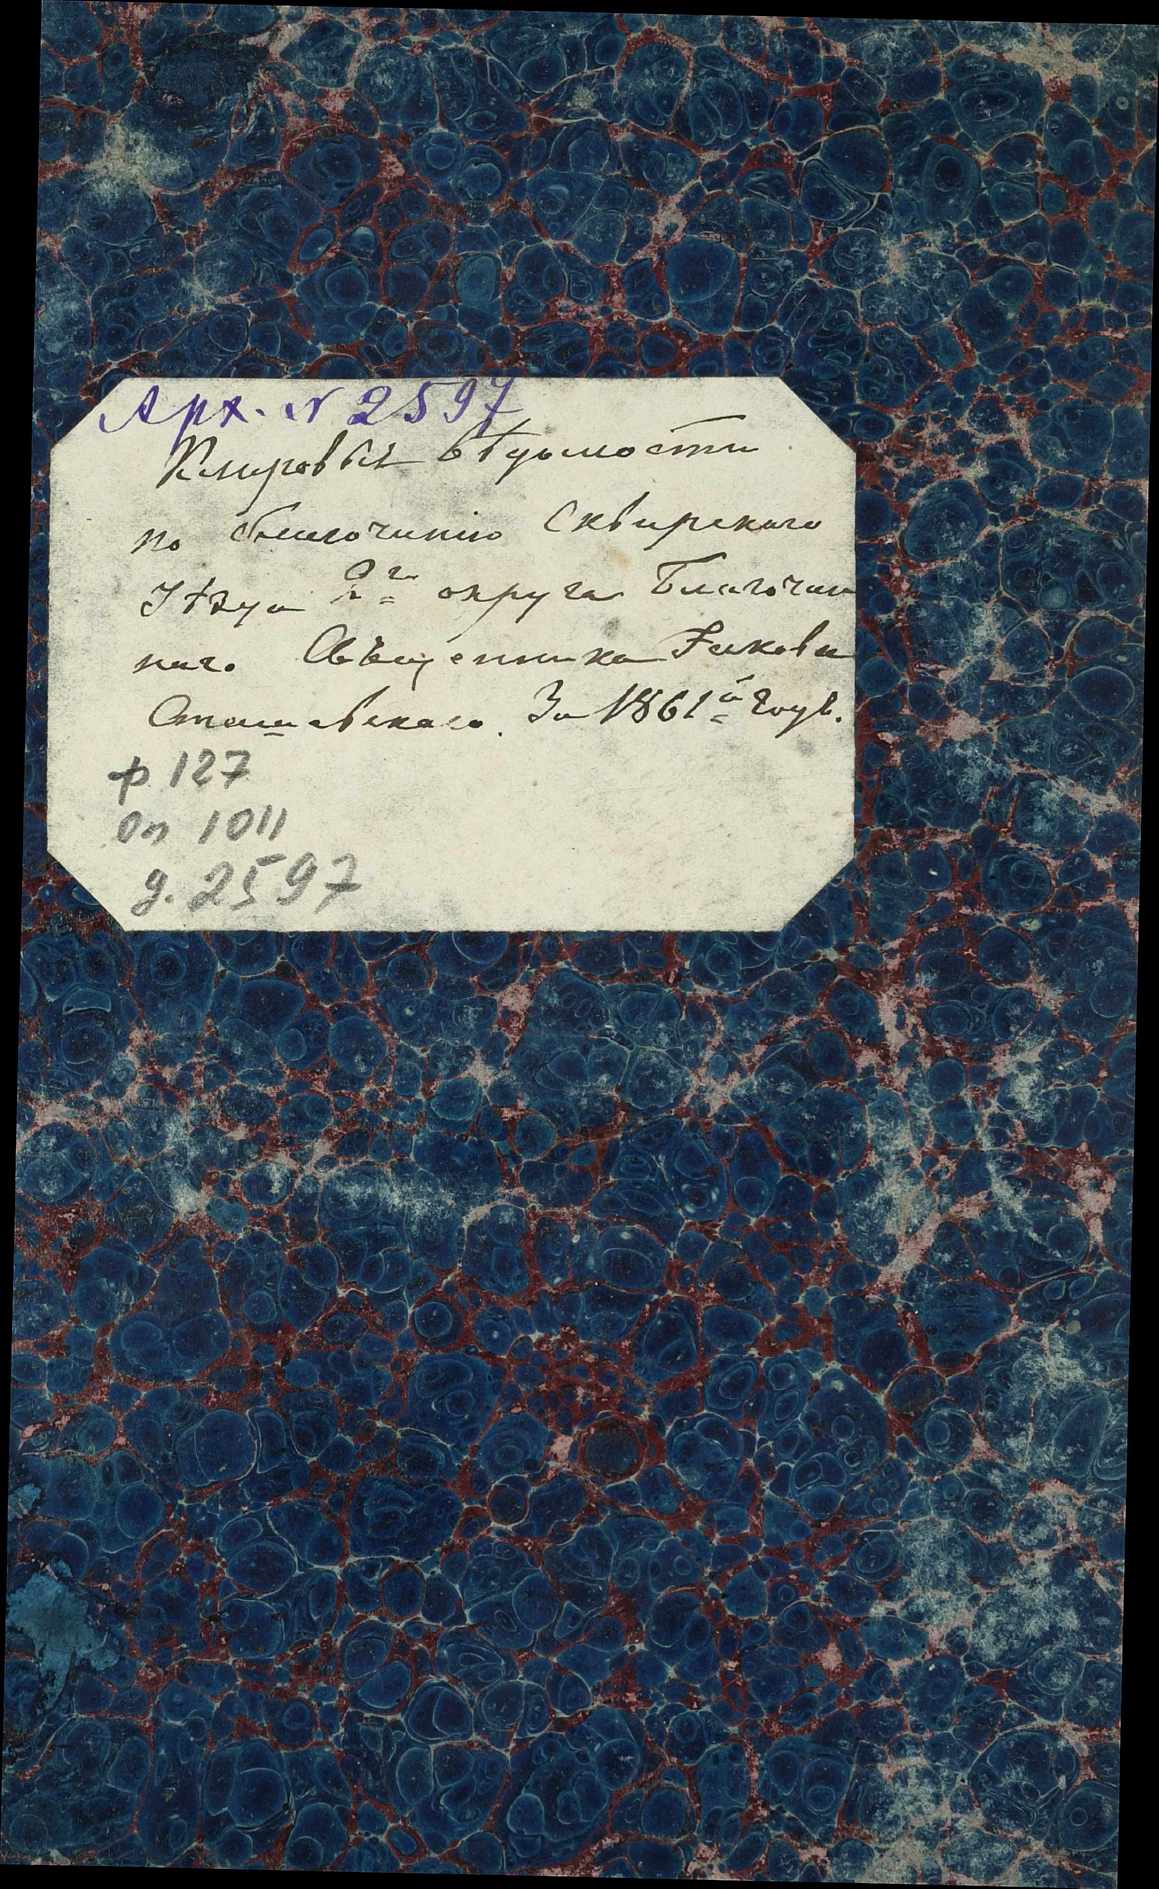 Арх. N 2597
Клировыя вѣдомости
по благочинію Сквирскаго
Уѣзда 2го округа Благочин
наго Священника Іакова
За 1861й Годъ.
ф 127
Оп 1011
д. 2597